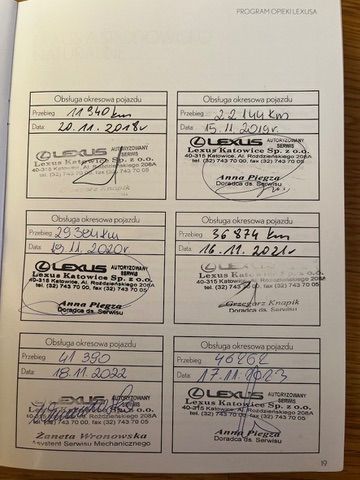 PROGRAM OPIEKI LEXUSA
Obsługa okresowa pojazdu
Przebieg: 11940 km
Data: 20.11.2018r
LEXUS
Lexus Katowice Sp. z o.o.
40-315 Katowice, Al. Roździeńskiego 208A
tel. (32) 743 70 00, fax (32) 743 70 05
Obsługa okresowa pojazdu
Przebieg: 22144 Km
Data: 15.11.2019r.
LEXUS AUTORYZOWANY SERWIS
Lexus Katowice Sp. z o.o.
40-315 Katowice, Al. Roździeńskiego 208A
tel. (32) 743 70 00, fax (32) 743 70 05
Anna Piegza
Doradca ds. Serwisu
Obsługa okresowa pojazdu
Przebieg: 29384km
Data: 19.11.2020r
LEXUS AUTORYZOWANY SERWIS
Lexus Katowice Sp. z o.o.
40-315 Katowice, Al. Roździeńskiego 208A
tel. (32) 743 70 00, fax (32) 743 70 05
Anna Piegza
Doradca ds. Serwisu
Obsługa okresowa pojazdu
Przebieg: 36874 km
Data: 16.11.2021r
LEXUS AUTORYZOWANY SERWIS
Lexus Katowice Sp. z o.o.
40-315 Katowice, Al. Roździeńskiego 208A
tel. (32) 743 70 00, fax (32) 743 70 05
Grzegorz Knapik
Doradca ds. Serwisu
Obsługa okresowa pojazdu
Przebieg: 41 390
Data: 18.11.2022
LEXUS AUTORYZOWANY SERWIS
Żaneta Wronowska
Asystent Serwisu Mechanicznego
Obsługa okresowa pojazdu
Przebieg:
Data: 17.11.2023
LEXUS AUTORYZOWANY SERWIS
Lexus Katowice Sp. z o.o.
40-315 Katowice, Al. Roździeńskiego 208A
tel. (32) 743 70 00, fax (32) 743 70 05
Anna Piegza
Doradca ds. Serwisu
19